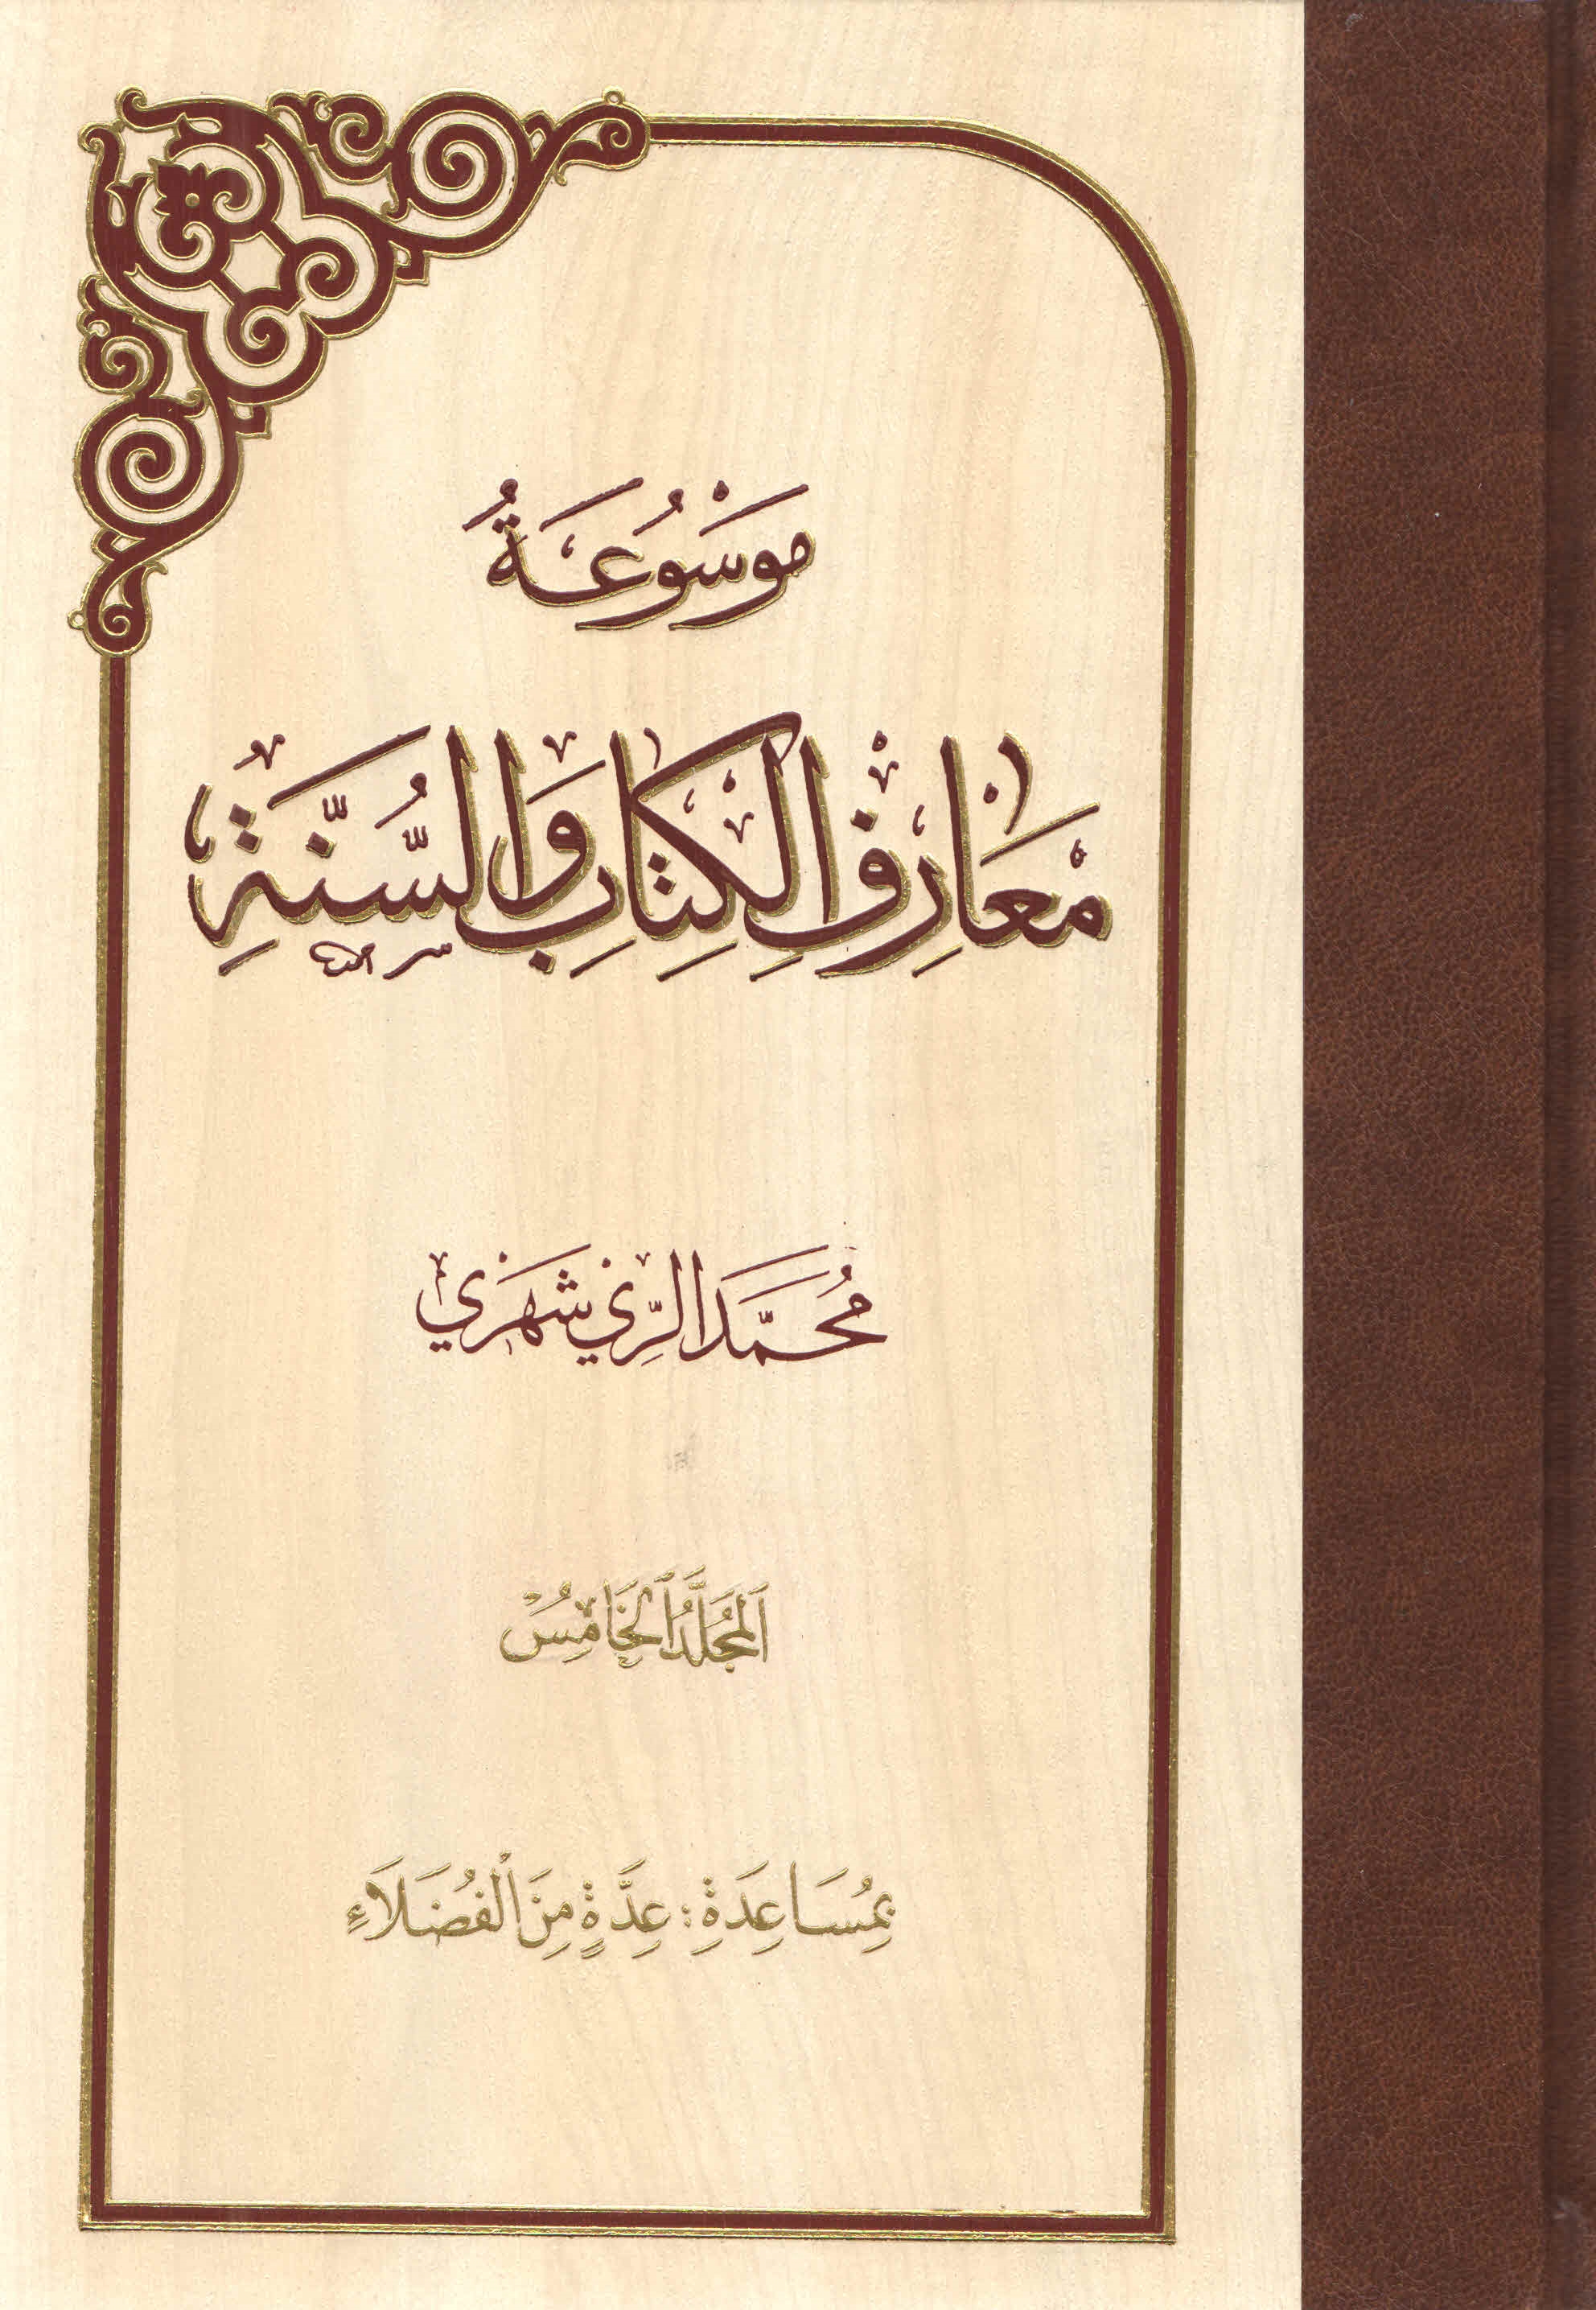 مَوْسُوعَةُ
مَعَارِفِ الْكِتَابِ وَالسُّنَّةِ
مُحَمَّد الرَّيْ شَهْرِي
اَلْمُجَلَّدُ الْخَامِسُ
بِمُسَاعِدَةِ: عِدَّةٍ مِنَ الْفُضَلَاءِ